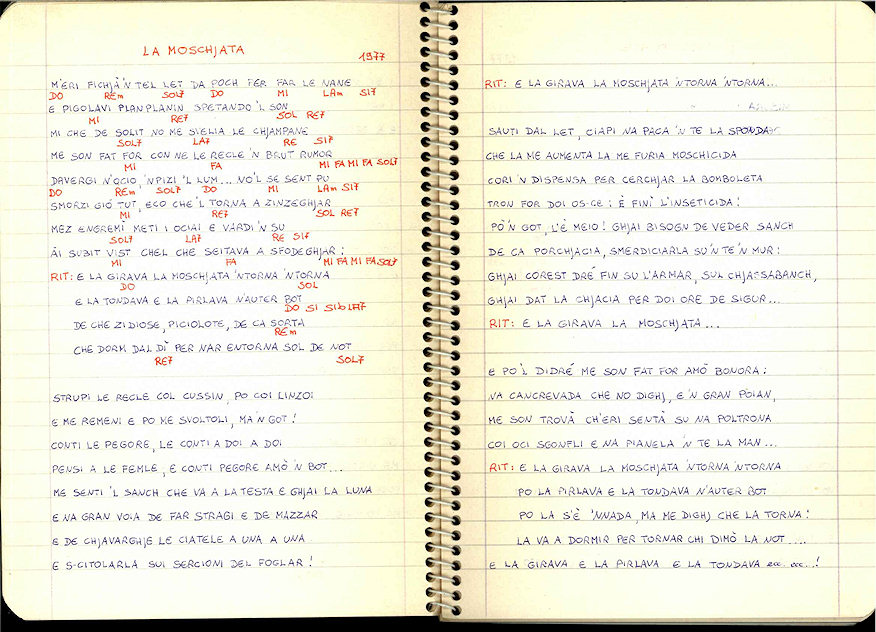 LA MOSCHJATA
1977
M'ERI FICHJÀ 'N TEL LET DA POCH PER FAR LE NANE
DO REm SOL7 DO MI LAm SI7
E PIGOLAVI PLANPLANIN SPETANDO 'L SON
MI RE7 SOL RE7
MI CHE DE SOLIT NO ME SVELIA LE CHJAMPANE
SOL7 LA7 RE SI7
ME SON FAT FOR CON NE LE RECLE 'N BRUT RUMOR
MI FA MI FA MI FA SOL7
DAVERGI N'OCIO, 'NPIZI 'L LUM... NO'L SE SENT PU
DO REm SOL7 DO MI LAm SI7
SMORZI GIÓ TUT, ECO CHE 'L TORNA A ZINZEGHJAR
MI RE7 SOL RE7
MEZ ENGREMÌ METI I OCIAI E VARDI 'N SU
SOL7 LA7 RE SI7
ÀI SUBIT VIST CHEL CHE SEITAVA A SFODEGHJAR:
MI FA MI FA MI FA SOL7
RIT: E LA GIRAVA LA MOSCHJATA 'NTORNA 'NTORNA
DO SOL
E LA TONDAVA E LA PIRLAVA N'AUTER BOT
DO SI SIb LA7
DE CHE ZIDIOSE, PICIOLOTE, DE CA SORTA
REm
CHE DORM DAL DÌ PER NAR ENTORNA SOL DE NOT
RE7 SOL7
STRUPI LE RECLE COL CUSSIN, PO COI LINZOI
E ME REMENI E PO ME SVOLTOLI, MA 'N GOT!
CONTI LE PEGORE, LE CONTI A DOI A DOI
PENSI A LE FEMLE, E CONTI PEGORE AMÒ 'N BOT...
ME SENTI 'L SANCH CHE VA A LA TESTA E GHJAI LA LUNA
E NA GRAN VOIA DE FAR STRAGI E DE MAZZAR
E DE CHJAVARGHJE LE CIATELE A UNA A UNA
E S-CITOLARLA SUI SERCIONI DEL FOGLAR!
RIT: E LA GIRAVA LA MOSCHJATA 'NTORNA 'NTORNA...
SAUTI DAL LET, CIAPI NA PACA 'N TE LA SPONDA
CHE LA ME AUMENTA LA ME FURIA MOSCHICIDA
CORI 'N DISPENSA PER CERCHJAR LA BOMBOLETA
TRON FOR DOI OS-CE: È FINÌ L'INSETICIDA!
PÒ 'N GOT, L'È MEIO! GHJAI BISOGN DE VEDER SANCH
DE CA PORCHJACIA, SMERDICIARLA SU 'N TE 'N MUR:
GHJAI COREST DRÉ FIN SU L'ARMAR, SUL CHJASSABANCH,
GHJAI DAT LA CHJACIA PER DOI ORE DE SIGUR...
RIT: E LA GIRAVA LA MOSCHJATA...
E PO 'L DIDRÉ ME SON FAT FOR AMÒ BONORA:
NA CANCREVADA CHE NO DIGHJ, E 'N GRAN POIAN,
ME SON TROVÀ CH'ERI SENTÀ SU NA POLTRONA
COI OCI SGONFLI E NA PIANELA 'N TE LA MAN...
RIT: E LA GIRAVA LA MOSCHJATA 'NTORNA 'NTORNA
PO LA PIRLAVA E LA TONDAVA N'AUTER BOT
PO LA S'È 'NNADA, MA ME DIGHJ CHE LA TORNA:
LA VA A DORMIR PER TORNAR CHI DIMÒ LA NOT....
E LA GIRAVA E LA PIRLAVA E LA TONDAVA ecc. ecc...!